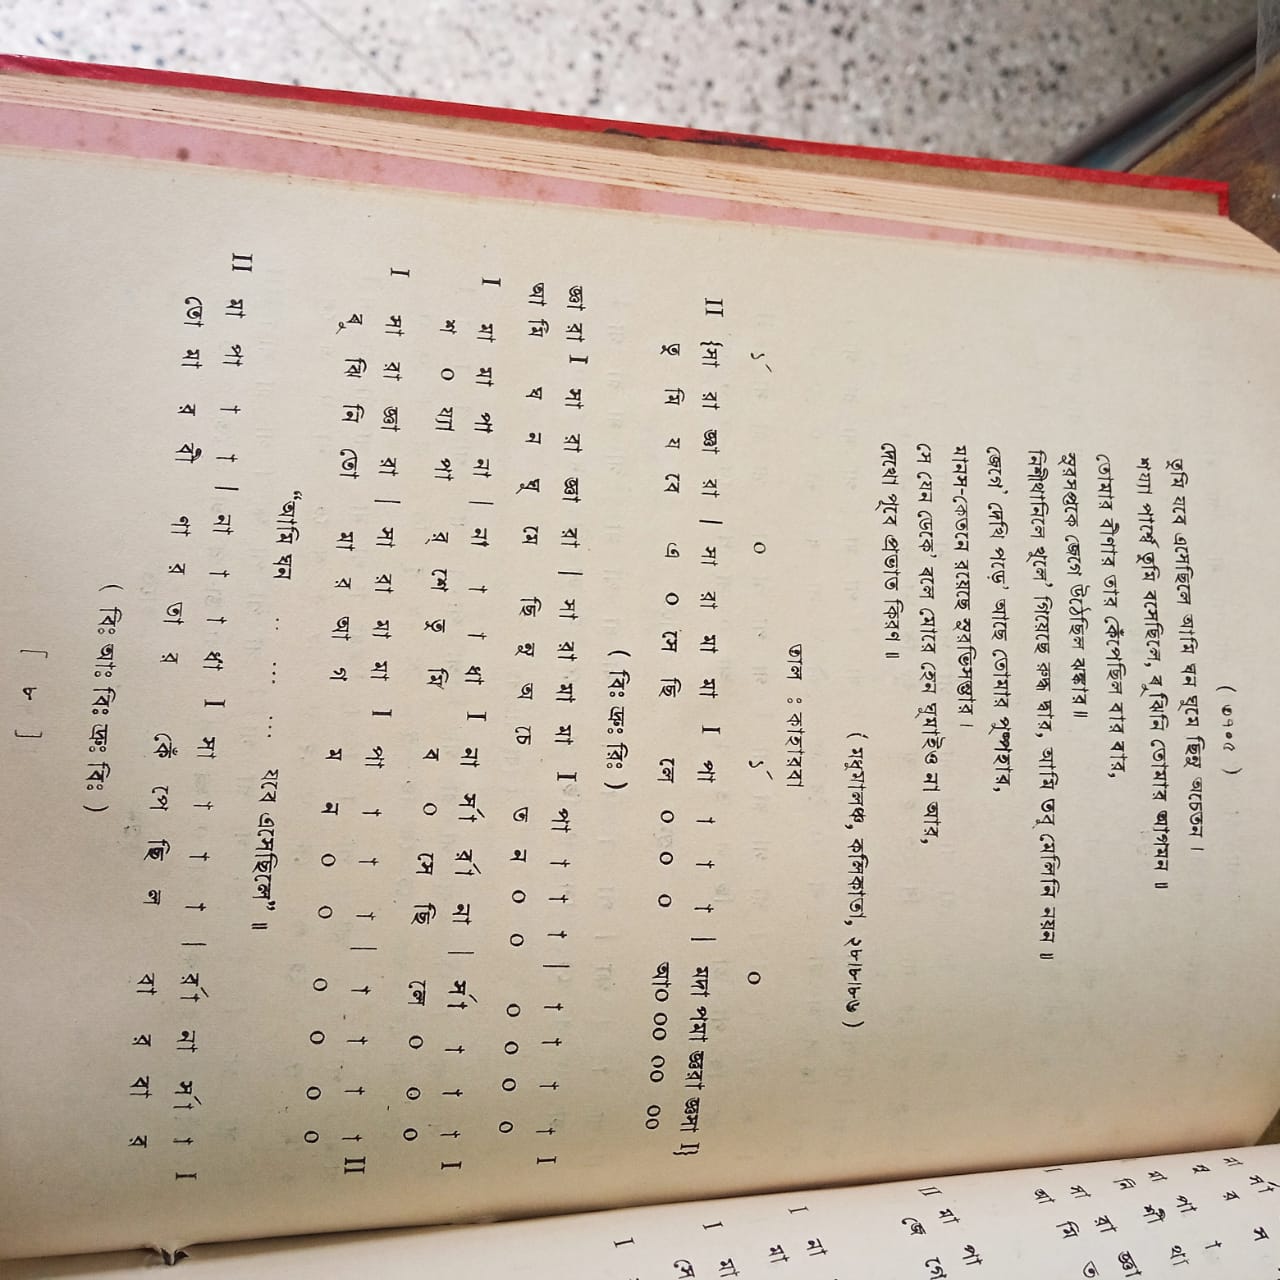 ( ৩৭০৫ )
তুমি যবে এসেছিলে আমি ঘন ঘুমে ছিনু অচেতন।
শয্যা পার্শ্বে তুমি বসেছিলে, বুঝিনি তোমার আগমন॥
তোমার বীণার তার কেঁপেছিল বার বার,
সুরসপ্তকে জেগে উঠেছিল ঝঙ্কার॥
নিশীথানিলে খুলে' গিয়েছে রুদ্ধ দ্বার, আমি তবু মেলিনি নয়ন॥
জেগে' দেখি পড়ে' আছে তোমার পুষ্পহার,
মানস-কেতনে রয়েছে সুরভিসম্ভার।
সে যেন ডেকে' বলে মোরে হেন ঘুমাইও না আর,
দেখো পূবে প্রভাত কিরণ॥
( মধুমালঞ্চ, কলিকাতা, ২৮।৮।৮৬ )
তাল : কাহারবা
১´ ০ ১´ ০
II {সা রা জ্ঞা রা | সা রা মা মা I পা † † † | মদা পমা জ্ঞরা জ্ঞসা I}
তু মি য বে এ ০ সে ছি লে ০ ০ ০ আ০ ০০ ০০ ০০
( বিঃ ফ্রঃ বিঃ )
জ্ঞা রা I সা রা জ্ঞা রা | সা রা মা মা I পা † † † | † † † † I
আ মি ঘ ন ঘু মে ছি নু অ চে ত ন ০ ০ ০ ০ ০ ০
I মা মা পা না | না † † র্ধা I না র্সা র্রা না | র্সা † † † I
শ ০ য্যা পা র্ শ্বে তু মি ব ০ সে ছি লে ০ ০ ০
I সা রা জ্ঞা রা | সা রা মা মা I পা † † † | † † † † II
বু ঝি নি তো মা র আ গ ম ন ০ ০ ০ ০ ০ ০
“আমি ঘুন ... ... ... যবে এসেছিলে”॥
II মা পা † † | না † † র্ধা I র্সা † † † | র্রা না র্সা † I
তো মা র বী ণা র তা র কেঁ পে ছি ল বা র বা র
( বিঃ আঃ বিঃ ফ্রঃ বিঃ )
[ ৮ ]